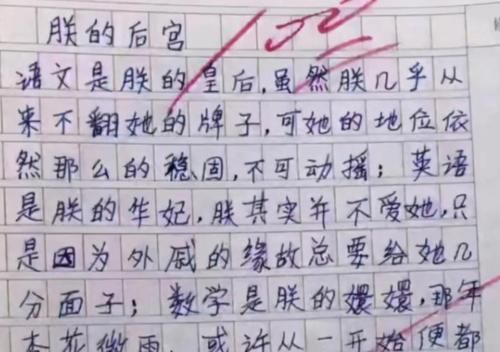 朕的后宫
语文是朕的皇后,虽然朕几乎从
来不翻她的牌子,可她的地位依
然那么的稳固,不可动摇;英语
是朕的华妃,朕其实并不爱她,只
是因为外戚的缘故总要给她几
分面子;数学是朕的嬛嬛,那年
杏花微雨,或许从一开始便都